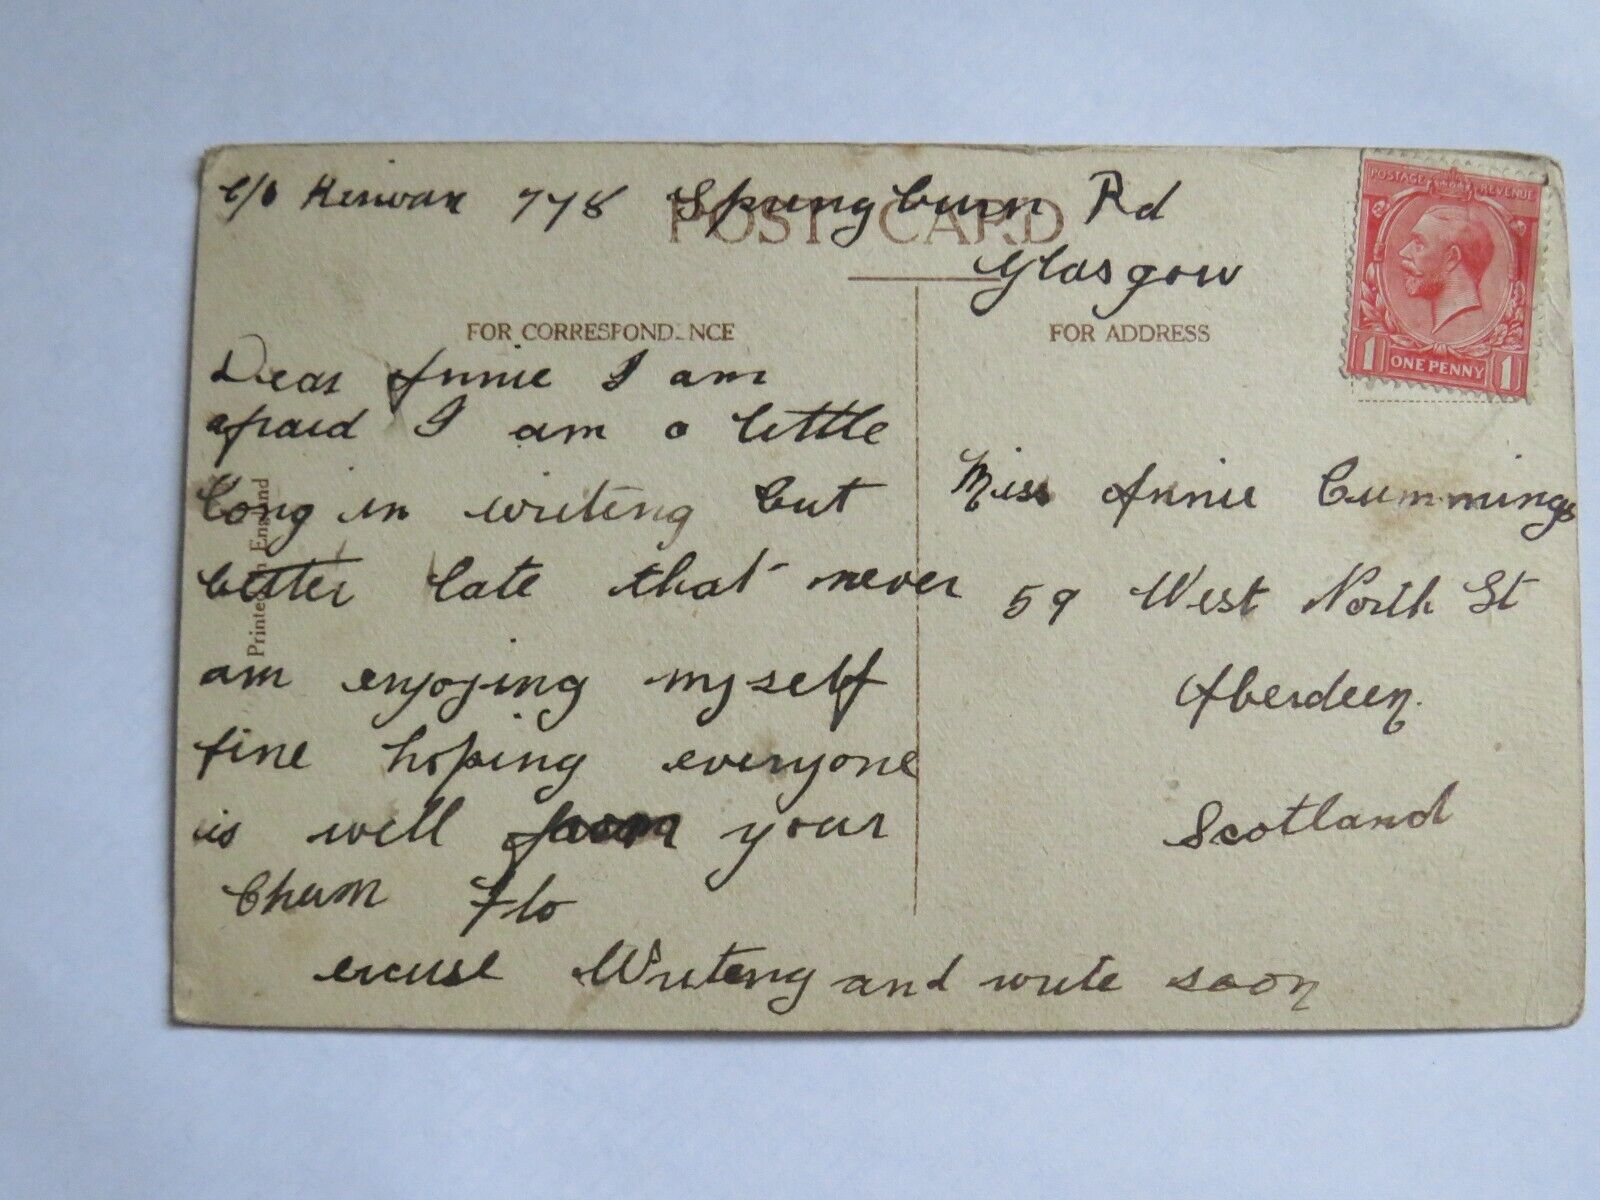 c/o Kerwan 778 Springburn Rd
Glasgow
POST CARD
POSTAGE REVENUE
1 ONE PENNY 1
FOR CORRESPONDENCE
FOR ADDRESS
Dear Annie I am
afraid I am a little
long in writing but
better late that never
am enjoying myself
fine hoping everyone
is well from your
Chum Flo
excuse Writing and write soon
Printed in England
Miss Annie Cummings
59 West North St
Aberdeen.
Scotland